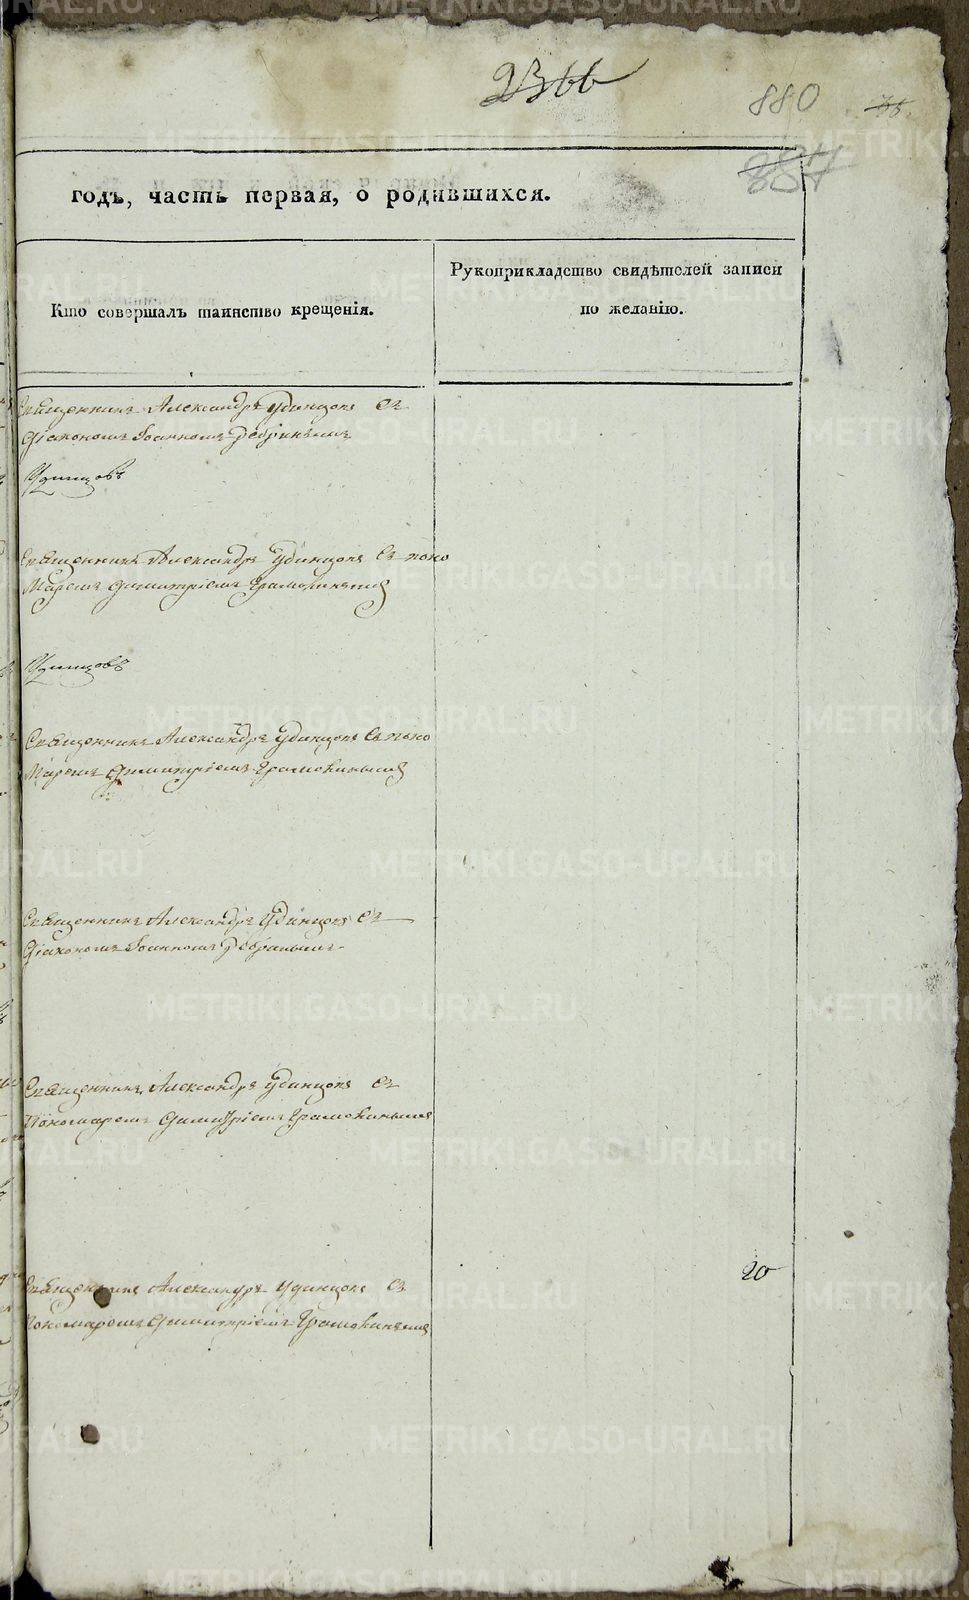 2366
880
годъ, часть первая, о родившихся.
Кто совершалъ таинство крещенія.
Рукоприкладство свидѣтелей записи
по желанію.
Священникъ Александръ Удинцовъ съ
Діакономъ Іоанномъ
Удинцовъ
Священникъ Александръ Удинцовъ Съ поно
Маремъ Димитріемъ
Удинцовъ
Священникъ Александръ Удинцовъ Съ поно
Маремъ Димитріемъ
Священникъ Александръ Удинцовъ Съ
Діакономъ Іоанномъ
Священникъ Александръ Удинцовъ Съ
Пономаремъ Димитріемъ
Священникъ Александръ Удинцовъ Съ
Пономаремъ Димитріемъ
20
METRIKI.GASO-URAL.RU